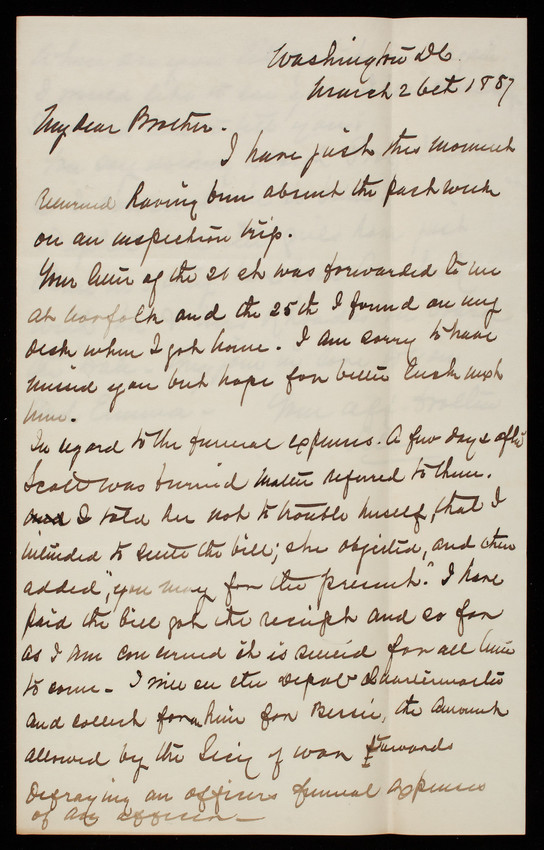 Washington DC.
March 26th 1887
My dear Brother.
I have just this moment
returned having been absent the past week
on an inspection trip.
Your letter of the 21st was forwarded to me
at Norfolk and the 25th I found on my
desk when I got home. I am sorry to have
missed you but hope for better luck next
time.
In regard to the funeral expenses. A few days after
Scott was buried matter referred to them.
I told her not to trouble herself, that I
intended to settle the bill; she objected, and then
added, "you may for the present." I have
paid the bill got the receipt and so far
as I am concerned it is settled for all time
to come. I will see the Depot Quartermaster
and collect from him for Bessie, the amount
allowed by the Secy of War towards
defraying an officers funeral expenses
of any officer—